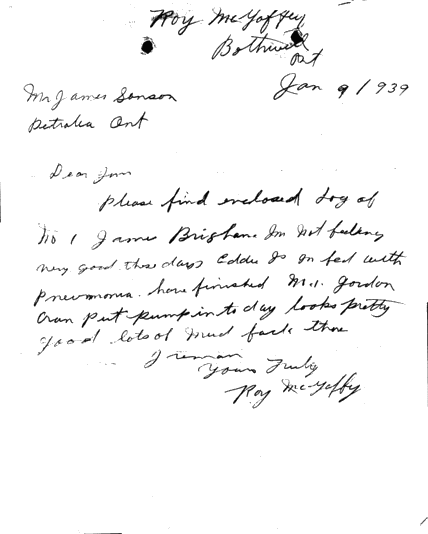 Roy McGaffey
Bothwell
Ont
Jan 9/1939
Mr James Sanson
Petrolea Ont
Dear Jim
Please find enclosed Log of
No 1 James Brigham. Im Not feeling
very good these days Eddie Is In bed with
Pneumonia. have finished No. 1. Gordon
Cran put pump in to day looks pretty
good lots of Mud back there
I remain
Yours Truly
Roy McGaffey